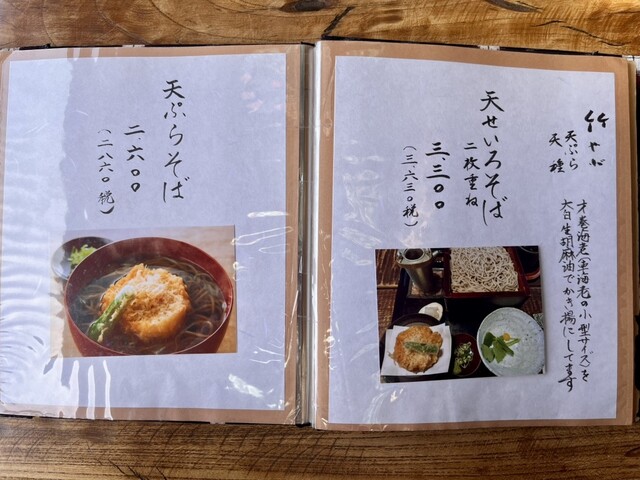 竹やぶ
天ぷら
天種
才巻海老(車海老の小型サイズ)を
太白生胡麻油でかき揚にしてます
天せいろそば
二枚重ね
三、三〇〇
(三、六三〇税)
天ぷらそば
二、六〇〇
(二、八六〇税)